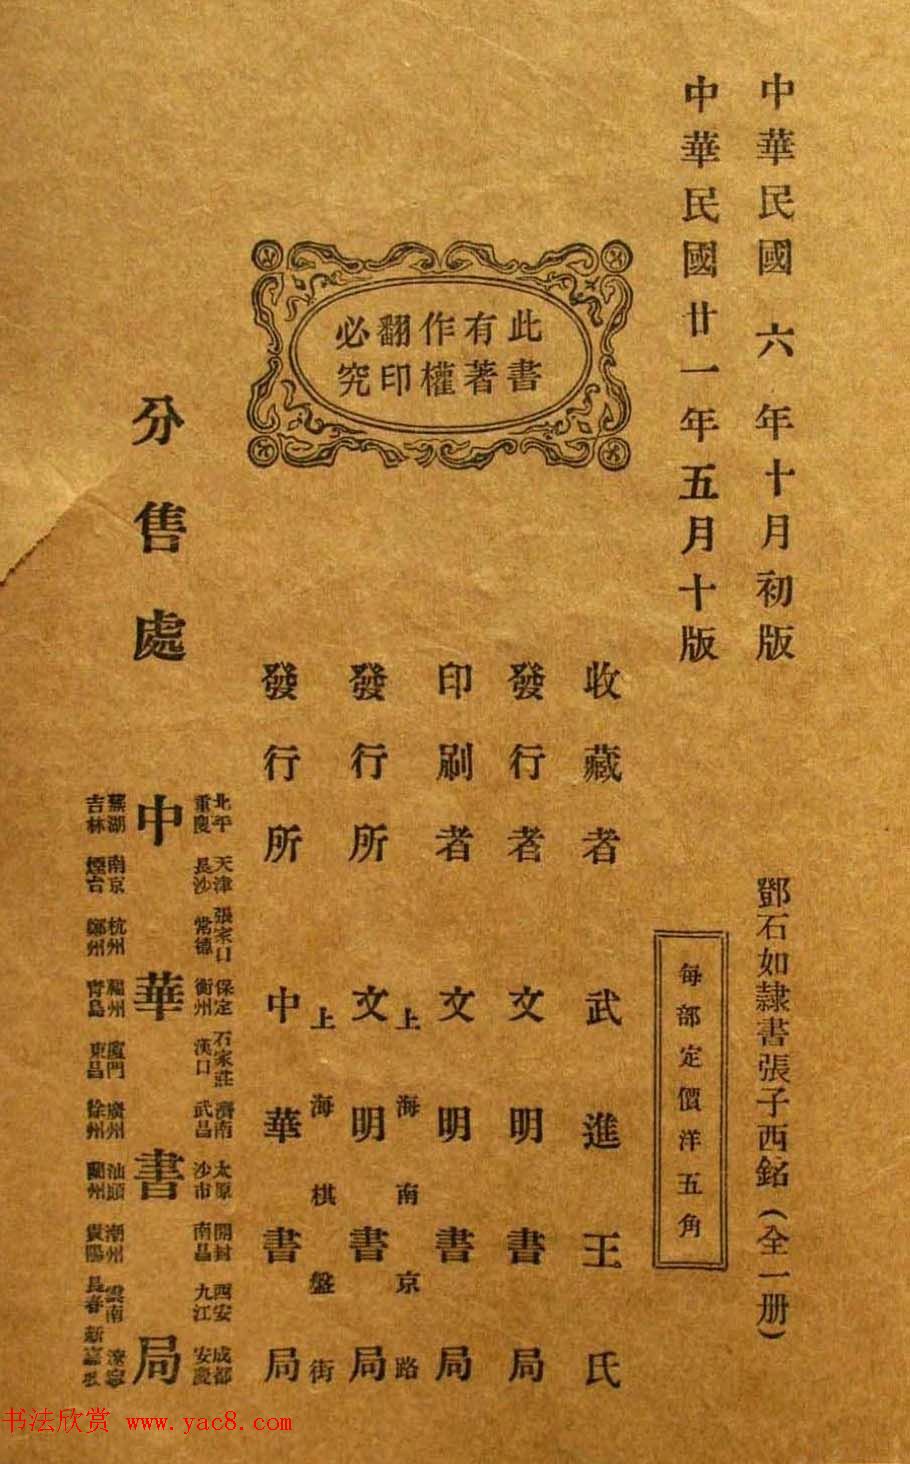 中華民國六年十月初版
中華民國廿一年五月十版
鄧石如隷書張子西銘(全一册)
每部定價洋五角
此書
有著
作權
翻印
必究
收藏者 武進王氏
發行者 文明書局
印刷者 文明書局
上海南京路
發行所 文明書局
上海棋盤街
發行所 中華書局
分售處 中華書局
北平 天津 張家口 保定 石家莊 濟南 太原 開封 西安 成都
重慶 長沙 常德 衡州 漢口 武昌 沙市 南昌 九江 安慶
蕪湖 南京 杭州 福州 廈門 廣州 汕頭 潮州 雲南 遼寧
吉林 煙台 鄭州 青島 東昌 徐州 蘭州 貴陽 長春 新嘉坡
书法欣赏 www.yac8.com